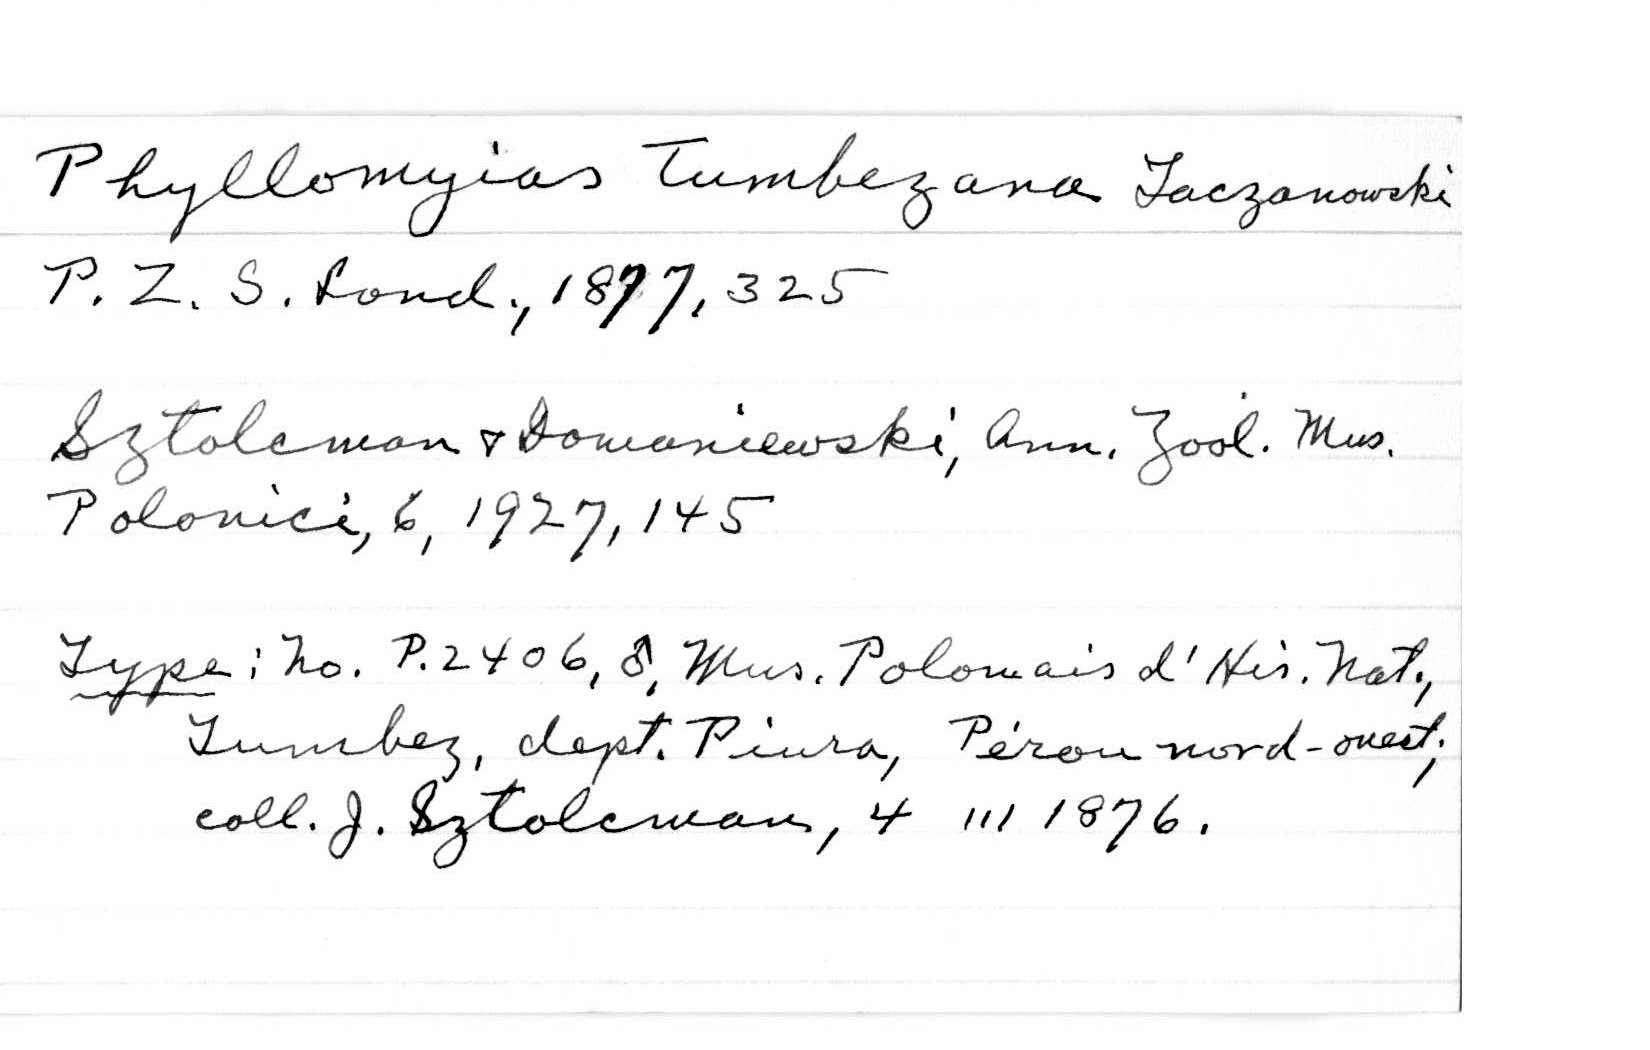 Phyllomyias Tumbezana Taczanowski
P. Z. S. Lond., 1877, 325
Sztolcman & Domaniewski, Ann. Zool. Mus.
Polonici, 6, 1927, 145
Type: No. P.2406, ♂, Mus. Polonais d'His. Nat.,
Tumbez, dept. Piura, Pérou nord-ouest;
coll. J. Sztolcman, 4 III 1876.